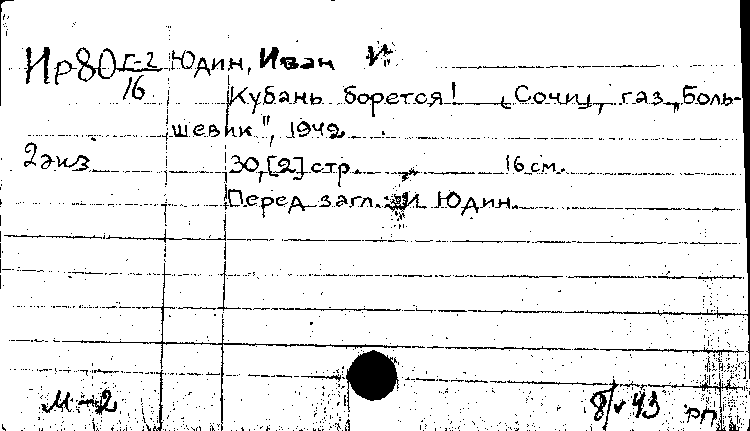 Ир80 Г-2/16 Юдин, Иван И.
Кубань борется! Сочи, газ. „Боль-
шевик", 1942.
2 экз 30,[2] стр. 16 см.
Перед загл.: И Юдин.
М-2 8/V 43 РП